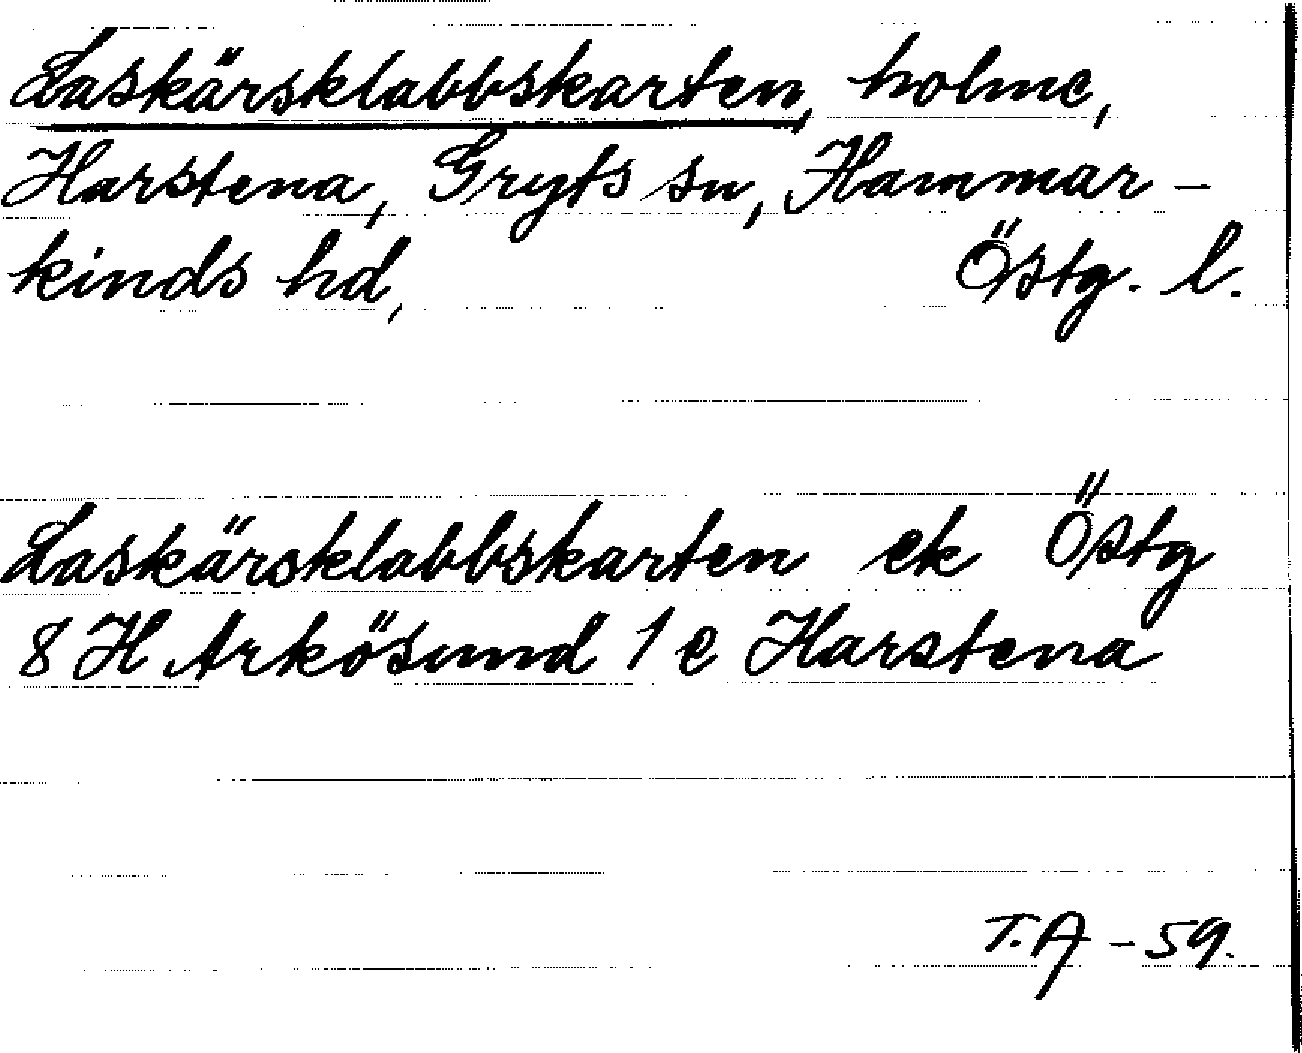 Laskärsklabbskarten, holme,
Harstena, Gryts sn, Hammar-
kinds hd, Östg. l.
Laskärsklabbskarten ek Östg
8 H Arkösund 1 e Harstena
T.A -59.